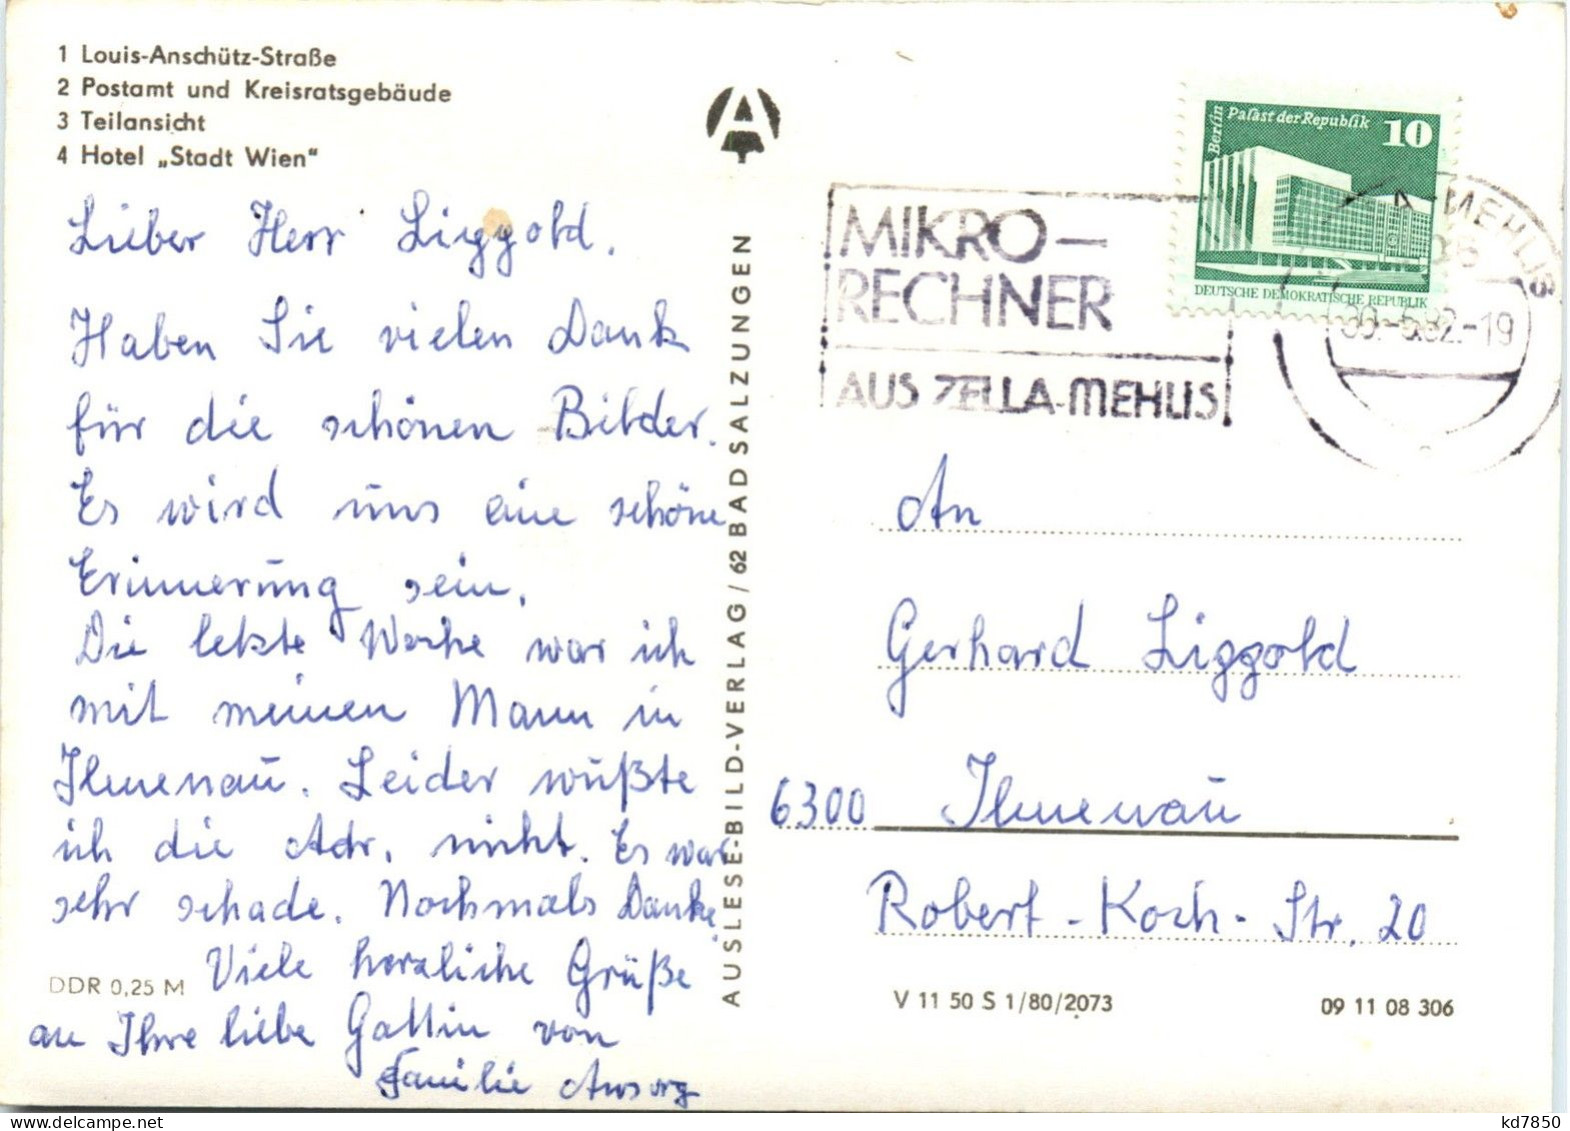 1 Louis-Anschütz-Straße
2 Postamt und Kreisratsgebäude
3 Teilansicht
4 Hotel „Stadt Wien"
Lieber Herr Liggold.
Haben Sie vielen Dank
für die schönen Bilder.
Es wird uns eine schöne
Erinnerung sein.
Die letzte Woche war ich
mit meinen Mann in
Ilmenau. Leider wußte
ich die Adr. nicht. Es war
sehr schade. Nochmals Danke.
Viele herzliche Grüße
an Ihre liebe Gattin von
Familie Ansorg
DDR 0,25 M
AUSLESE-BILD-VERLAG / 62 BAD SALZUNGEN
MIKRO-
RECHNER
AUS ZELLA-MEHLIS
Berlin
Palast der Republik 10
DEUTSCHE DEMOKRATISCHE REPUBLIK
A-MEHLIS
30.-5.82.-19
An
Gerhard Liggold
6300 Ilmenau
Robert-Koch-Str. 20
V 11 50 S 1/80/2073
09 11 08 306
kd7850